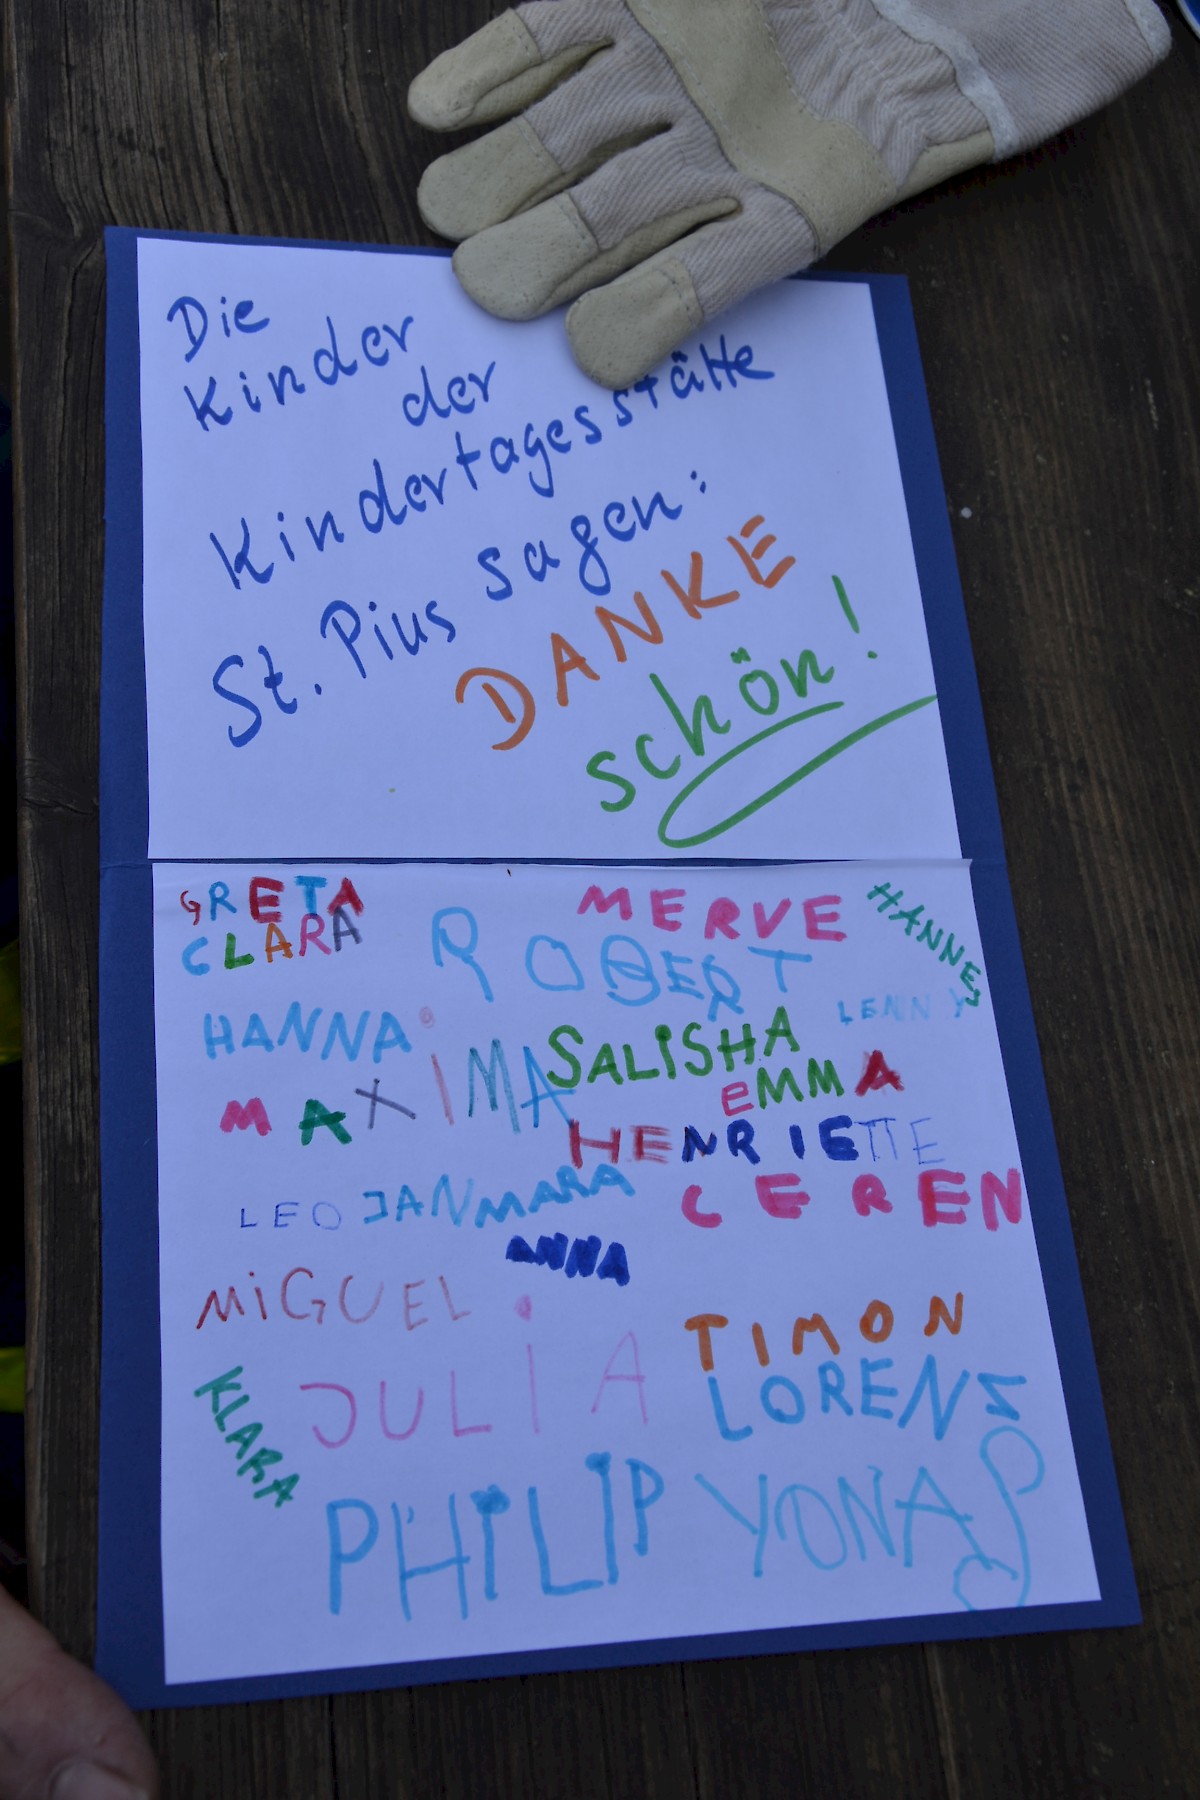 Die
Kinder
der
Kindertagesstätte
St. Pius sagen:
DANKE
schön!
GRETA
CLARA
ROBERT
MERVE
HANNES
HANNA
LENNY
SALISHA
MAXIMA
EMMA
HENRIETTE
LEO JAN MARA
CEREN
ANNA
MiGUEL
TIMON
JULiA
LORENS
KLARA
PHiLIP
YONAS